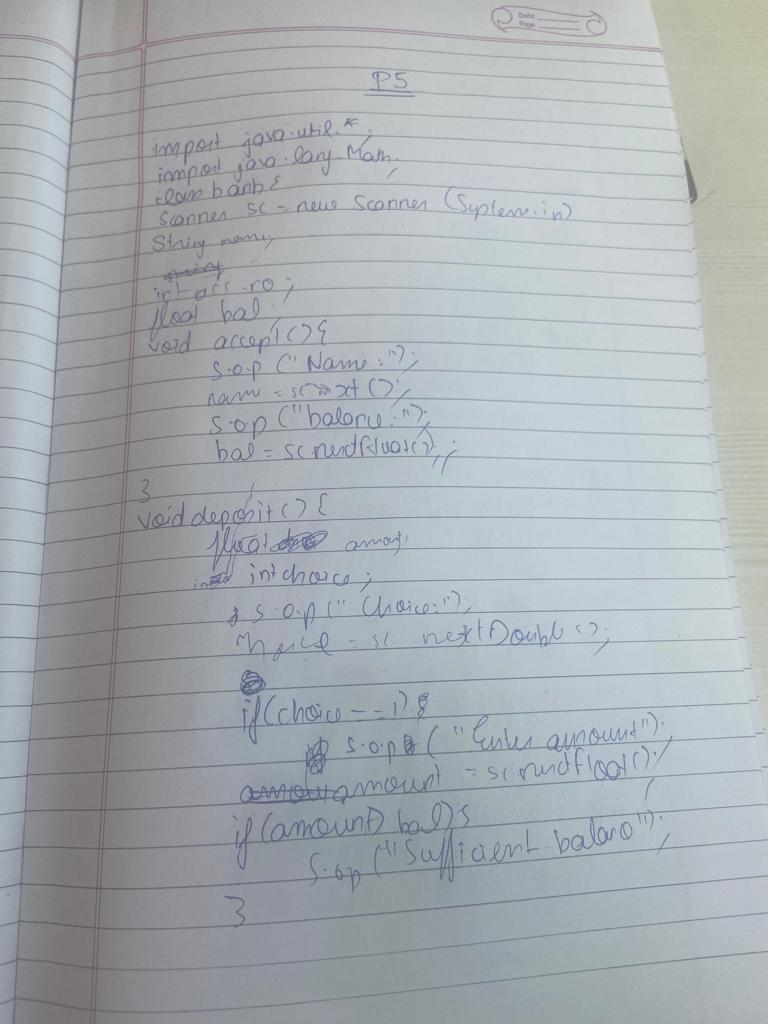 Date
Page
P5
import java.util.*;
import java.lang.Math;
class bank{
Scanner sc = new Scanner (System.in)
String name;
int acc.no;
float bal;
void accept(){
S.o.p ("Name:");
name = sc.next();
S.o.p ("balance:");
bal = sc.nextfloat();;
}
void deposit(){
float amon;
int choice;
S.o.p (" Choice:");
choice = sc. nextDouble ();
if(choice == 1){
S.o.p ("Enter amount");
amount = sc.nextfloat();
if(amount> bal){
S.op ("Sufficient balanc");
}